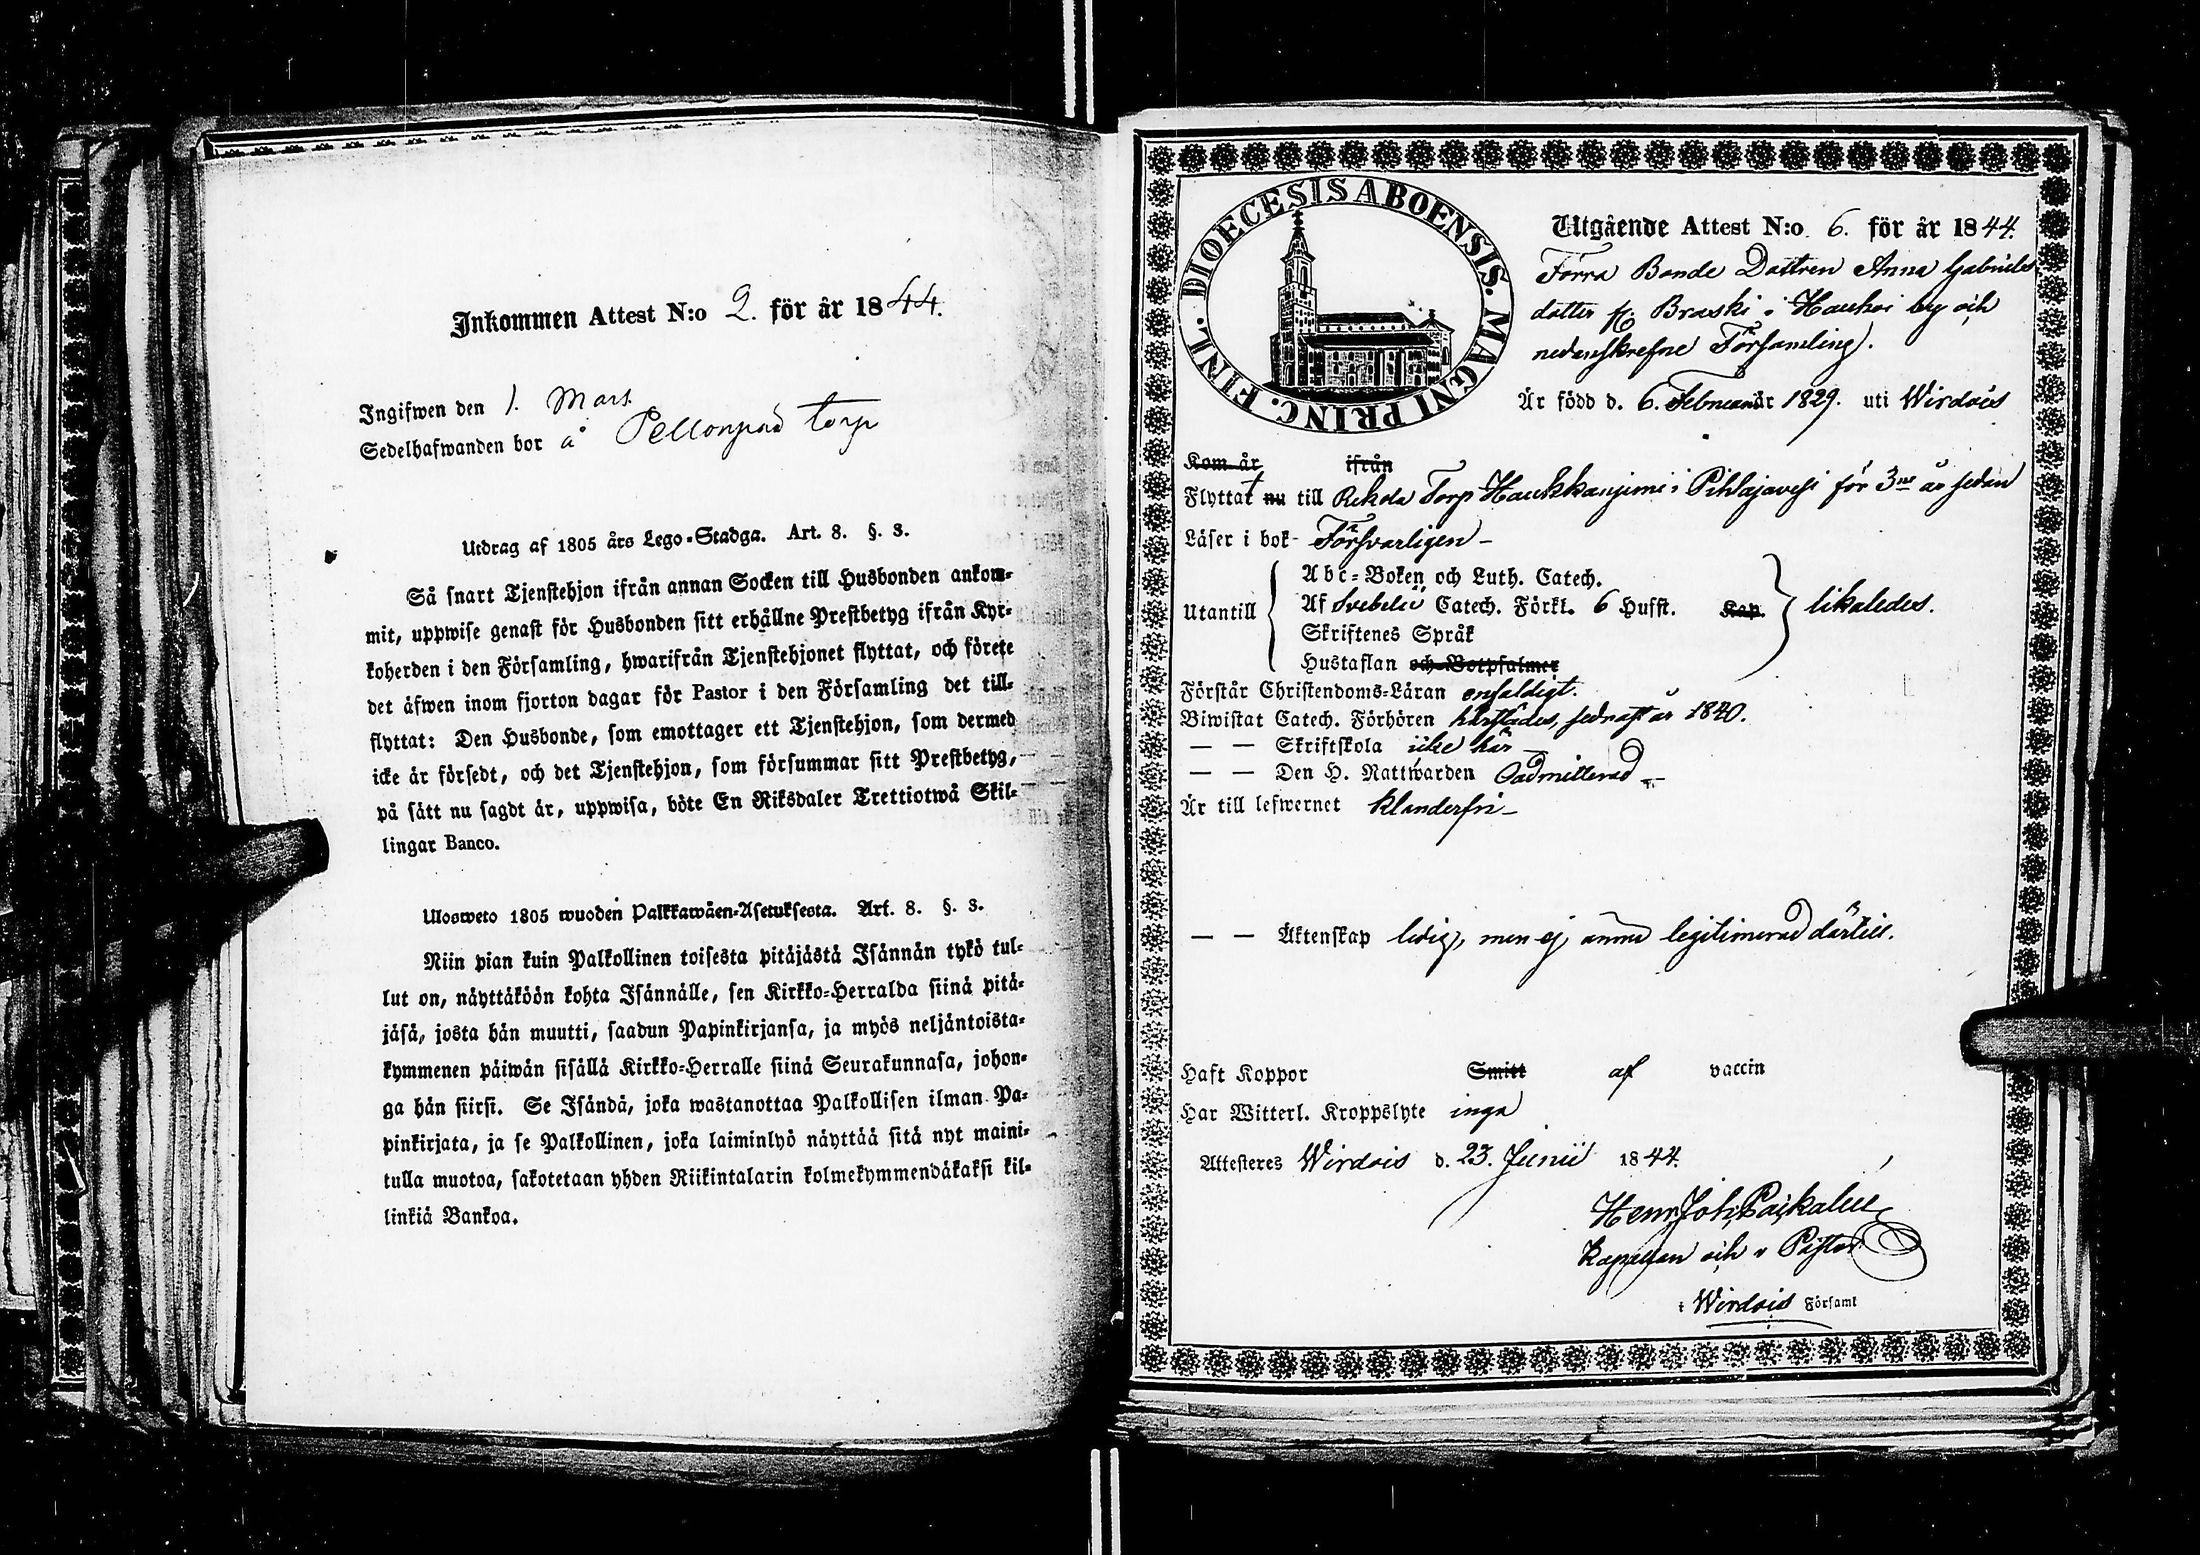 Inkommen Attest N:o 2. för år 1844.
Ingifwen den 1. Mart.
Sedelhafwanden bor å Pellonpää torp
Utdrag af 1805 års Lego-Stadga. Art. 8. §. 3.
Så snart Tjenstehjon ifrån annan Socken till Husbonden ankom-
mit, uppwise genast för Husbonden sitt erhållne Prestbetyg ifrån Kyr-
koherden i den Församling, hwarifrån Tjenstehjonet flyttat, och förete
det äfwen inom fjorton dagar för Pastor i den Församling det till-
flyttat: Den Husbonde, som emottager ett Tjenstehjon, som dermed
icke är försedt, och det Tjenstehjon, som försummar sitt Prestbetyg,
på sätt nu sagdt är, uppwisa, böte En Riksdaler Trettiotwå Skil-
lingar Banco.
Ulosweto 1805 wuoden Palkkawäen-Asetuksesta. Art. 8. §. 3.
Niin pian kuin Palkollinen toisesta pitäjästä Isännän tykö tul-
lut on, näyttäköön kohta Isännälle, sen Kirkko-Herralda siinä pitä-
jäsä, josta hän muutti, saadun Papinkirjansa, ja myös neljäntoista-
kymmenen päiwän sisällä Kirkko-Herralle siinä Seurakunnasa, johon-
ga hän siirsi. Se Isändä, joka wastanottaa Palkollisen ilman Pa-
pinkirjata, ja se Palkollinen, joka laiminlyö näyttää sitä nyt maini-
tulla muotoa, sakotetaan yhden Riikintalarin kolmekymmendäkaksi kil-
linkiä Bankoa.
DIOECESIS ABOENSIS. MAGNI PRINC. FINL.
Utgående Attest N:o 6. för år 1844.
Förra Bonde Dottren Anna Gabriels
dotter fr. Braski i Hauhoi by och
nedanskrefne Församling.
Är född d. 6. Februari år 1829. uti Wirdois
Kom år ifrån
Flyttat nu till Rekola Torp Haukkaniemi i Pihlajavesi för 3ne år sedan
Läser i bok Försvarligen
Utantill
Abc-Boken och Luth. Catech.
Af Svebelii Catech. Förkl. 6 Hufst. Kap. likaledes.
Skriftenes Språk
Hustaflan och Botpsalmer
Förstår Christendoms-Läran enfaldigt.
Biwistat Catech. Förhören härstädes, sednast år 1840.
— — Skriftskola icke här
— — Den H. Nattwarden Oadmitterad
Är till lefwernet klanderfri
— — Äktenskap ledig, men ej ännu legitimerad därtill.
Haft Koppor Smitt af vaccin
Har Witterl. Kroppslyte inga
Attesteres Wirdois d. 23. Junii 1844.
Henr Joh Paikalin
Kapellan och v Pastor
i Wirdois Församl